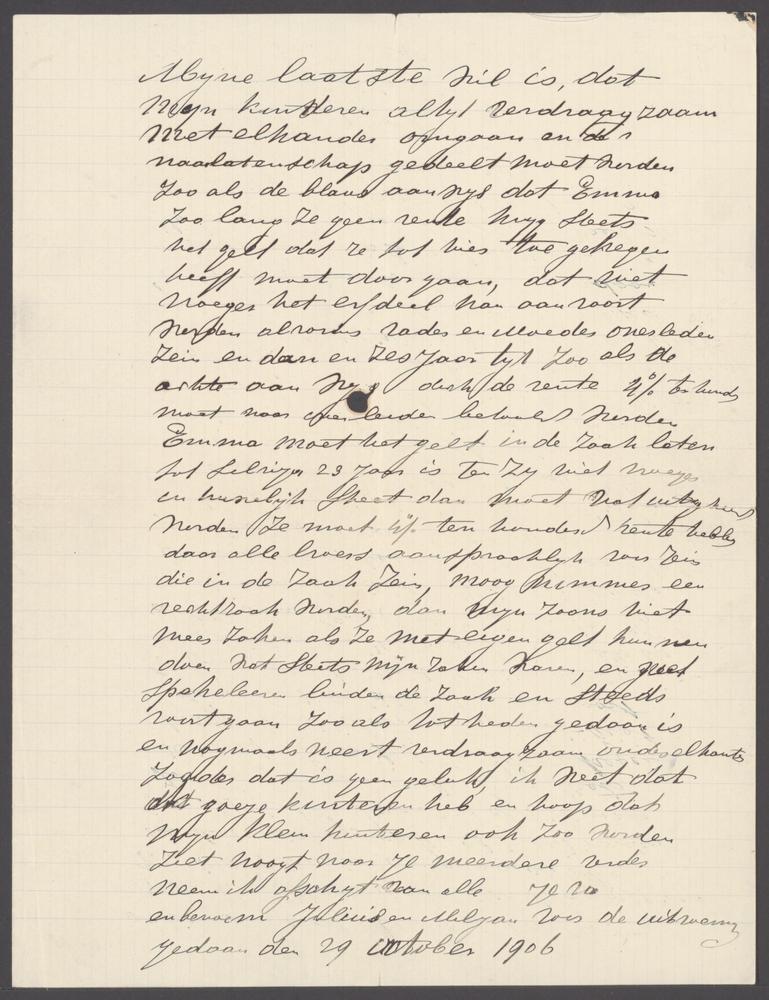 Myne laatste wil is, dat
myn kinderen altyt verdraagzaam
met elkander omgaan en de
naalatenschap gedeelt moet worden
zoo als de blans aanwys dat Emma
zoo lang ze geen rente kryg steets
het gelt dat ze tot hier toe gekregen
heeft moet door gaan, dat niet
vroeger het erfdeel kan aanvaort
worden alvorens vader en moeder overleden
zein en dan en zes jaar tyt zoo als de
achte aan wys doch de rente 4% ten honds
moet naar overleiden betaalt worden
Emma moet het gelt in de zaak laten
tot Selviya 23 jaar is ten zy niet vroeger
in huwelijk street dan moet wat uitgekeerd
worden ze moet 4% ten hondert rente hebben
daar alle broers aanspraaklyk voor zein
die in de zaak zein, moog nimmer een
rechtzaak worden, dan myn zoons niet
meer zaken als ze met eigen gelt kunnen
doen wat steets mijn raden waren, en niet
spekeleeren buiden de zaak en steeds
voort gaan zoo als tot heden gedaan is
en nogmaals weest verdraagzaam onder elkander
zonder dat is geen geluk, ik weet dat
dat goeje kinteren heb en hoop dat
myn klein kinteren ook zoo worden
ziet nooyt naar je meerdere verder
neem ik afschyt van alle
en benoem Julius en Meljan voor de uitvoering
gedaan den 29 october 1906